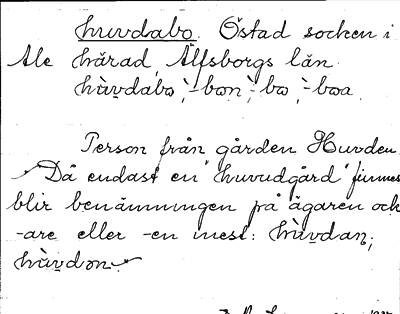 huvdabo. Östad socken i
Ale härad, Älfsborgs län.
hùvdabo, -bon, -bo, -boa.
Person från gården Huvden.
Då endast en "huvudgård" finnes
blir benämningen på ägaren och
-are eller -en mest: hùvdan,
hùvdon.